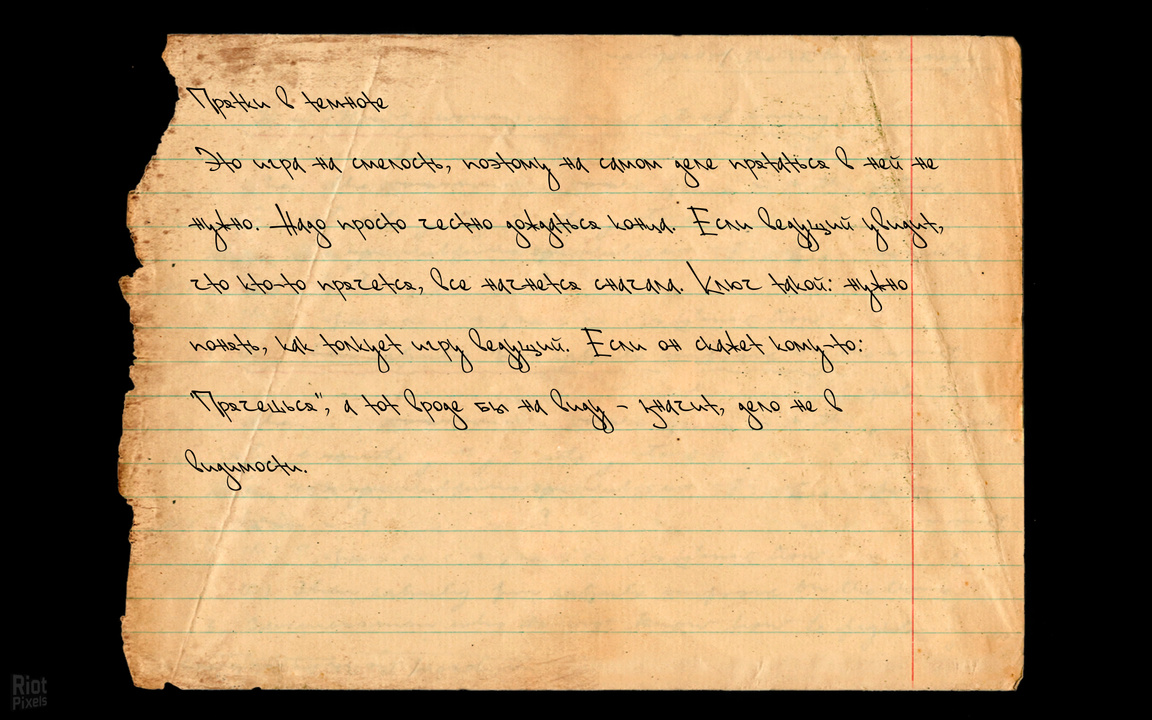 Прятки в темноте
Это игра на смелость, поэтому на самом деле прятаться в ней не
нужно. Надо просто честно дождаться конца. Если ведущий увидит,
что кто-то прячется, все начнется сначала. Ключ такой: нужно
понять, как толкует игру ведущий. Если он скажет кому-то:
"Прячешься", а тот вроде бы на виду - значит, дело не в
видимости.
Riot
Pixels